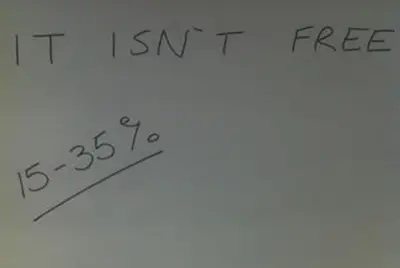 IT ISN'T FREE
15-35%